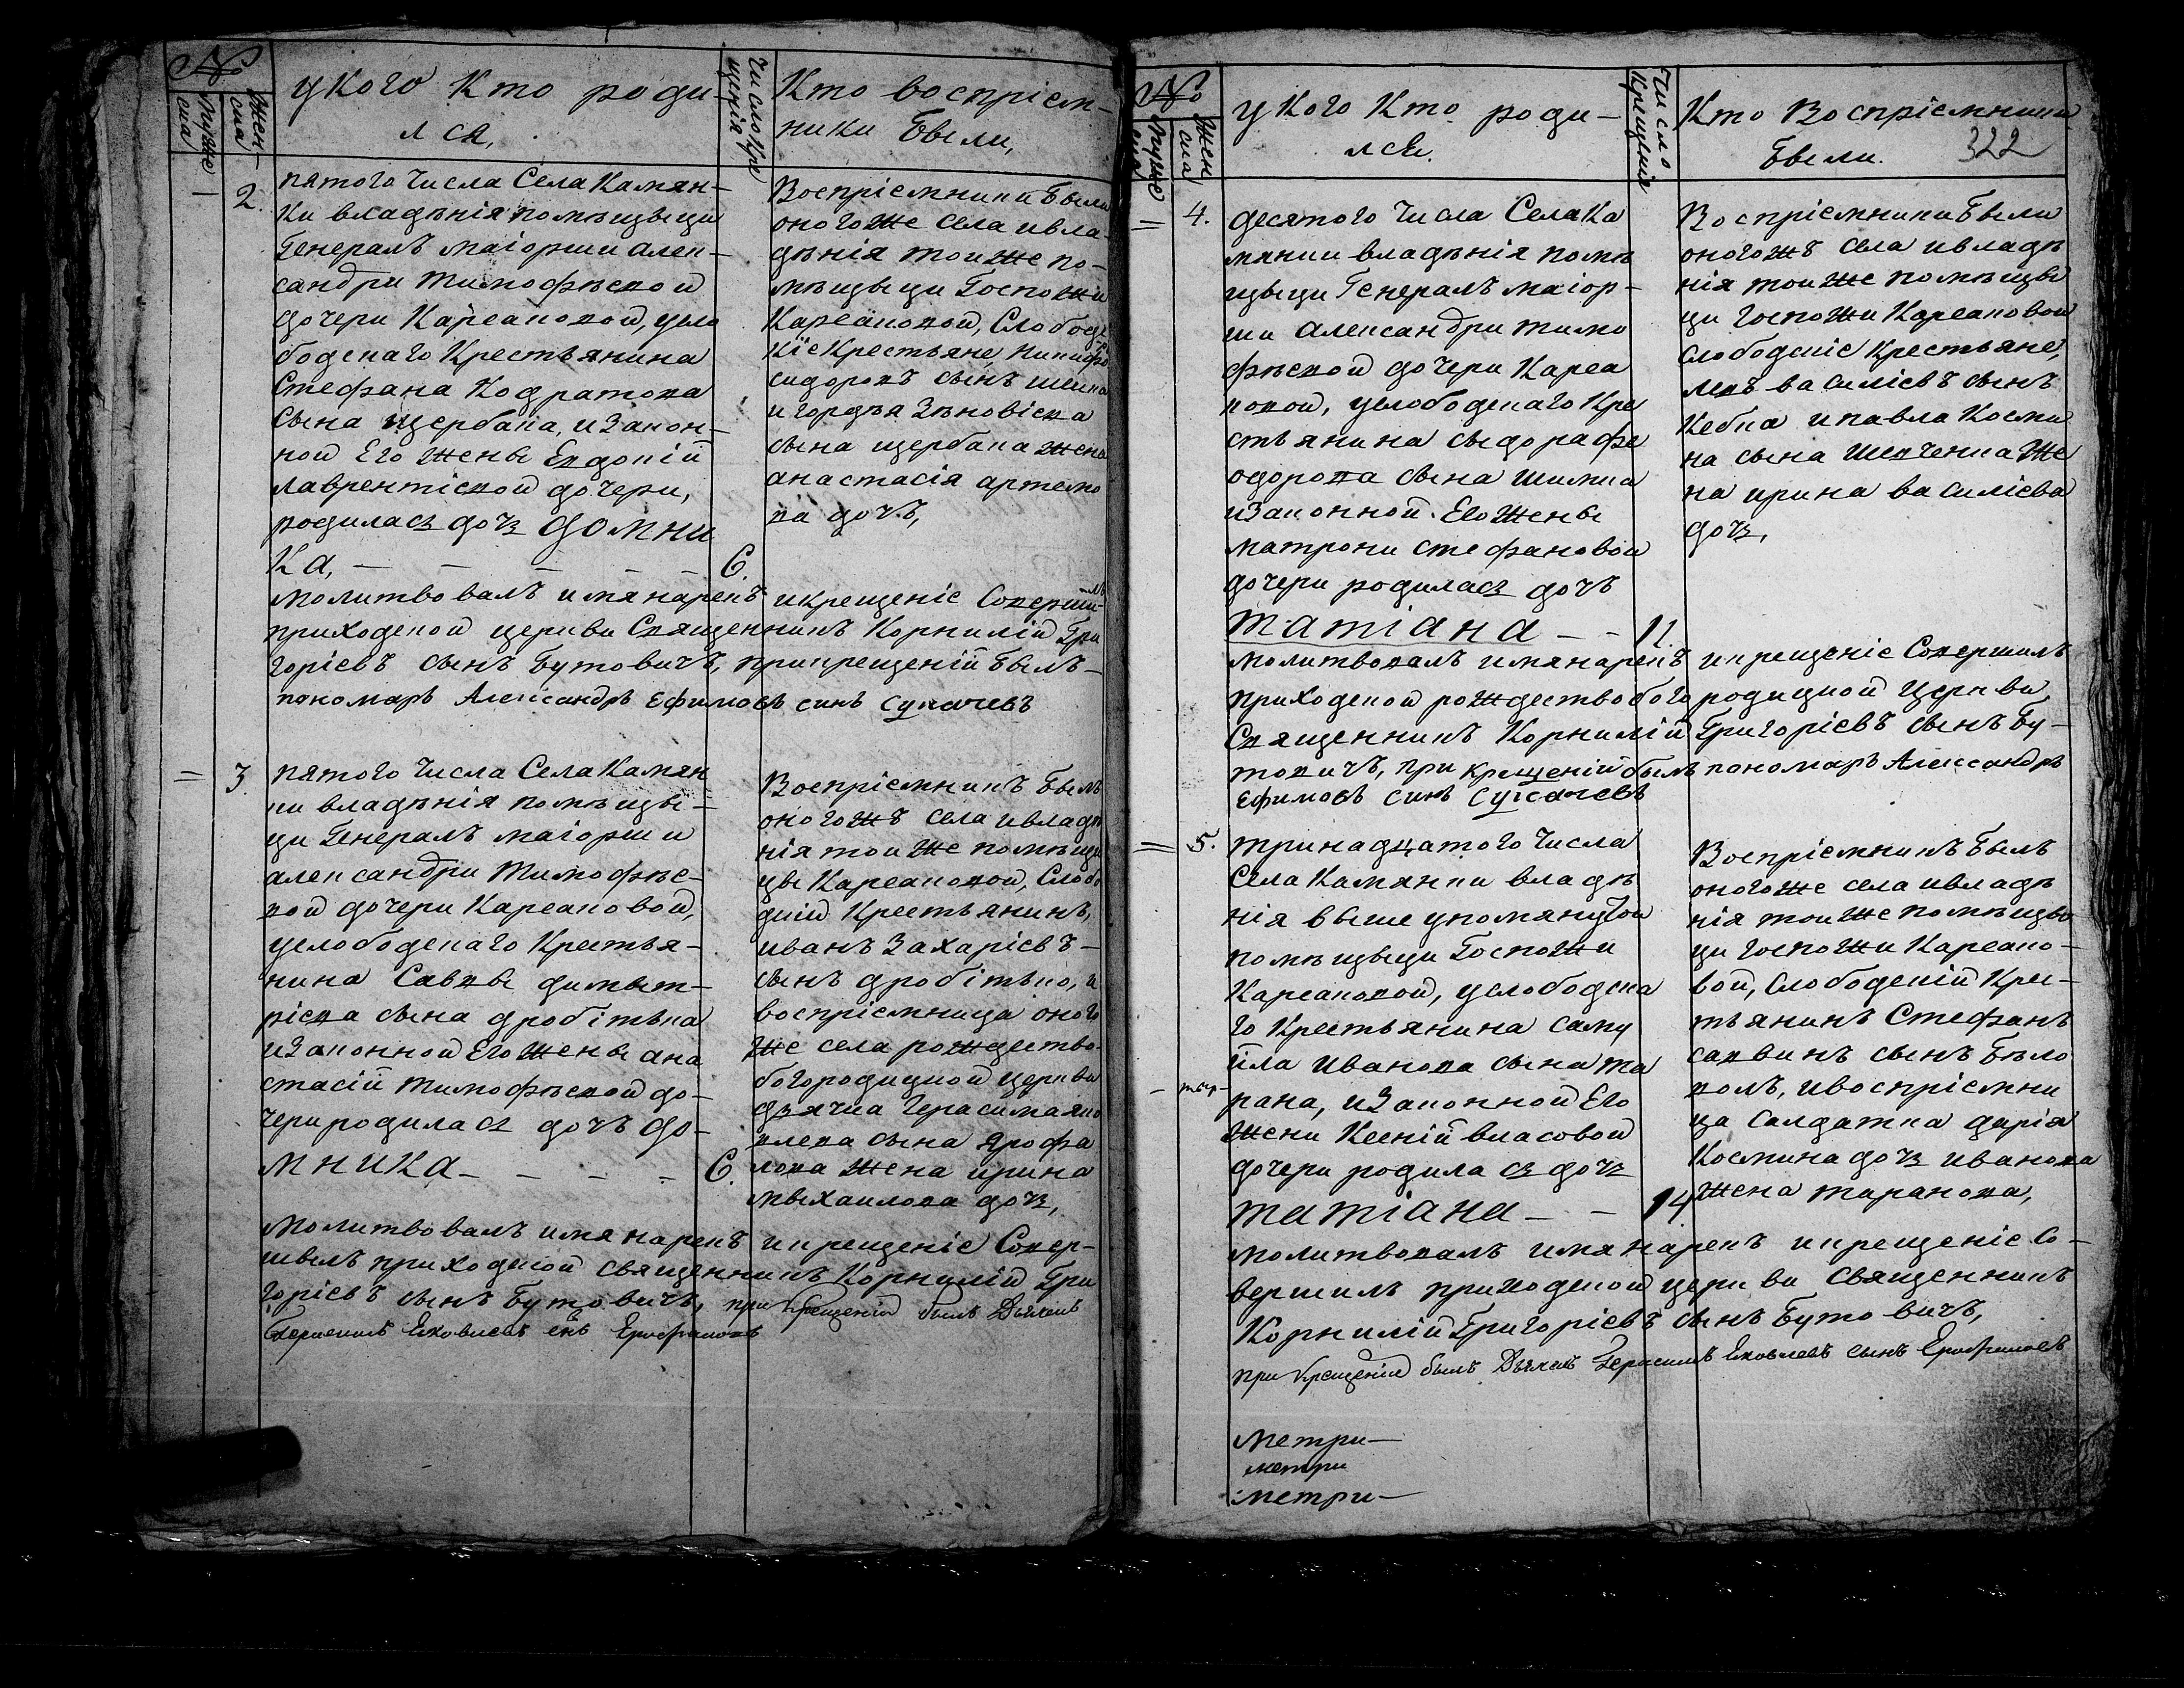 №
Мужеска
Женска
у кого кто роди-
лся,
Число крещения
Кто воспріем-
ники были,
2.
пятого числа Села Камян-
ки владѣнія помѣщыци
Генералъ маіорши алек-
сандри тимофѣевой
дочери Карсановой, усло
бодскаго крестьянина
Стефана Кодратова
сына щербака, изакон-
ной Его жены Евдокій
лаврентіевой дочери,
родилась дочь домни
ка, — — — — — 6.
Воспріемники были
оного же села ивла-
дѣнія тоиже по-
мѣщыци Госпожи
Карсановой, Слободс
кіе крестьяне, никифо
сидоровъ сынъ
и гордѣя Зѣновіева
сына щербака жена
анастасія артемо
ва дочъ,
молитвовалъ имя нарекъ икрещеніе Соверши
приходской церкви Священникъ Корнилій Гри
горіевъ сынъ Бутовичъ, прикрещеній былъ
паномаръ Александръ Ефимовъ синъ Сукачевъ
3.
пятого числа Села Камян
ки владѣнія помѣщы-
ци Генералъ маіорши
александри Тимофѣе-
вой дочери Карсановой,
услободскаго Крестья-
нина Саввы димыт-
ріева сына дробітька
изаконной Его жены ана
стасій тимофѣевой до-
чери родилась дочъ до-
мника — — — — 6.
Воспріемникъ былъ
оногожъ села ивладѣ
нія тоиже помѣщи
цы Карсановой, Слобо
дскій Крестьянинъ,
иванъ Захаріевъ
сынъ дробітько, и
воспріемница оного
же села рождество-
богородицкой церкви
дячка Герасима яко
влева сына ярофа
лова жена ирина
мыхаилова дочь,
молитвовалъ имя нарекъ икрещеніе Совер-
шилъ приходской священникъ Корнилій Гри
горіевъ сынъ Бутовичъ, при Крещеніи былъ Дьячекъ
Герасимъ Яковлевъ снъ Ерофаловъ
№
Мужеска
Женска
у кого кто роди-
лся.
Число крещения
Кто Воспріемники
были. 322
4.
десятого числа Села Ка
мянки владѣнія помѣ
щыци Генералъ маіор-
ши александри тимо
фѣевой дочери Карса
новой, услободскаго Кре
стьянина сыдора фе
одорова сына шимка
изаконной Его жены
матрони стефановой
дочери родилась дочъ
татіана — — 11.
Воспріемники были
оногожъ села ивладѣ
нія тоиже помѣщы
ци госпожи Карсановой
слободскіе крестьяне,
левъ василіевъ сынъ
Кебка и павла Косми
на сына шевченка же
на ирина василіева
дочь,
молитвовалъ имя нарекъ икрещеніе Совершилъ
приходской рождествобогородицкой церкви,
Священникъ Корнилій Григоріевъ сынъ Бу-
товичъ, при крещеній былъ паномаръ Александръ
Ефимовъ синъ Сукачевъ
5.
тринадцатого числа
Села Камянки владѣ
нія выше упомянутой
помѣщыци Госпожи
Карсановой, услободска
го Крестьянина саму
йла Иванова сына та
рана, изаконной Его
жени Ксеній власовой
дочери родилась дочь
татіана — — 14.
Воспріемникъ былъ
оного же села ивладѣ
нія тоиже помѣщы
ци госпожи Карсано-
вой, Слободскій Крес-
тьянинъ Стефанъ
саввинъ сынъ Бѣло
волъ, ивоспріемни
ца салдатка дарія
Космина дочь иванова
жена таранова,
молитвовалъ имя нарекъ икрещеніе Со-
вершилъ приходской церкви Священникъ
Корнилій Григоріевъ сынъ Бутовичъ,
при Крещеніи былъ Дьячекъ Герасимъ Яковлевъ сынъ Ерофаловъ
метри—
метри
метри—